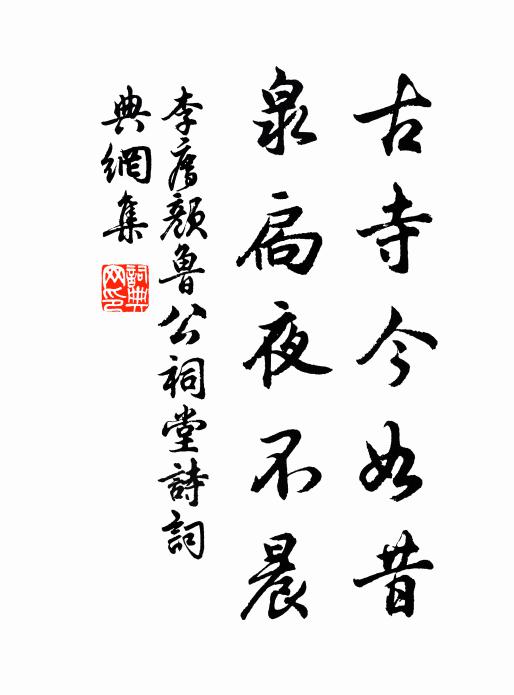 古寺今如昔
泉扃夜不晨
李廌顏魯公祠堂詩詞
典網集
詞典網印